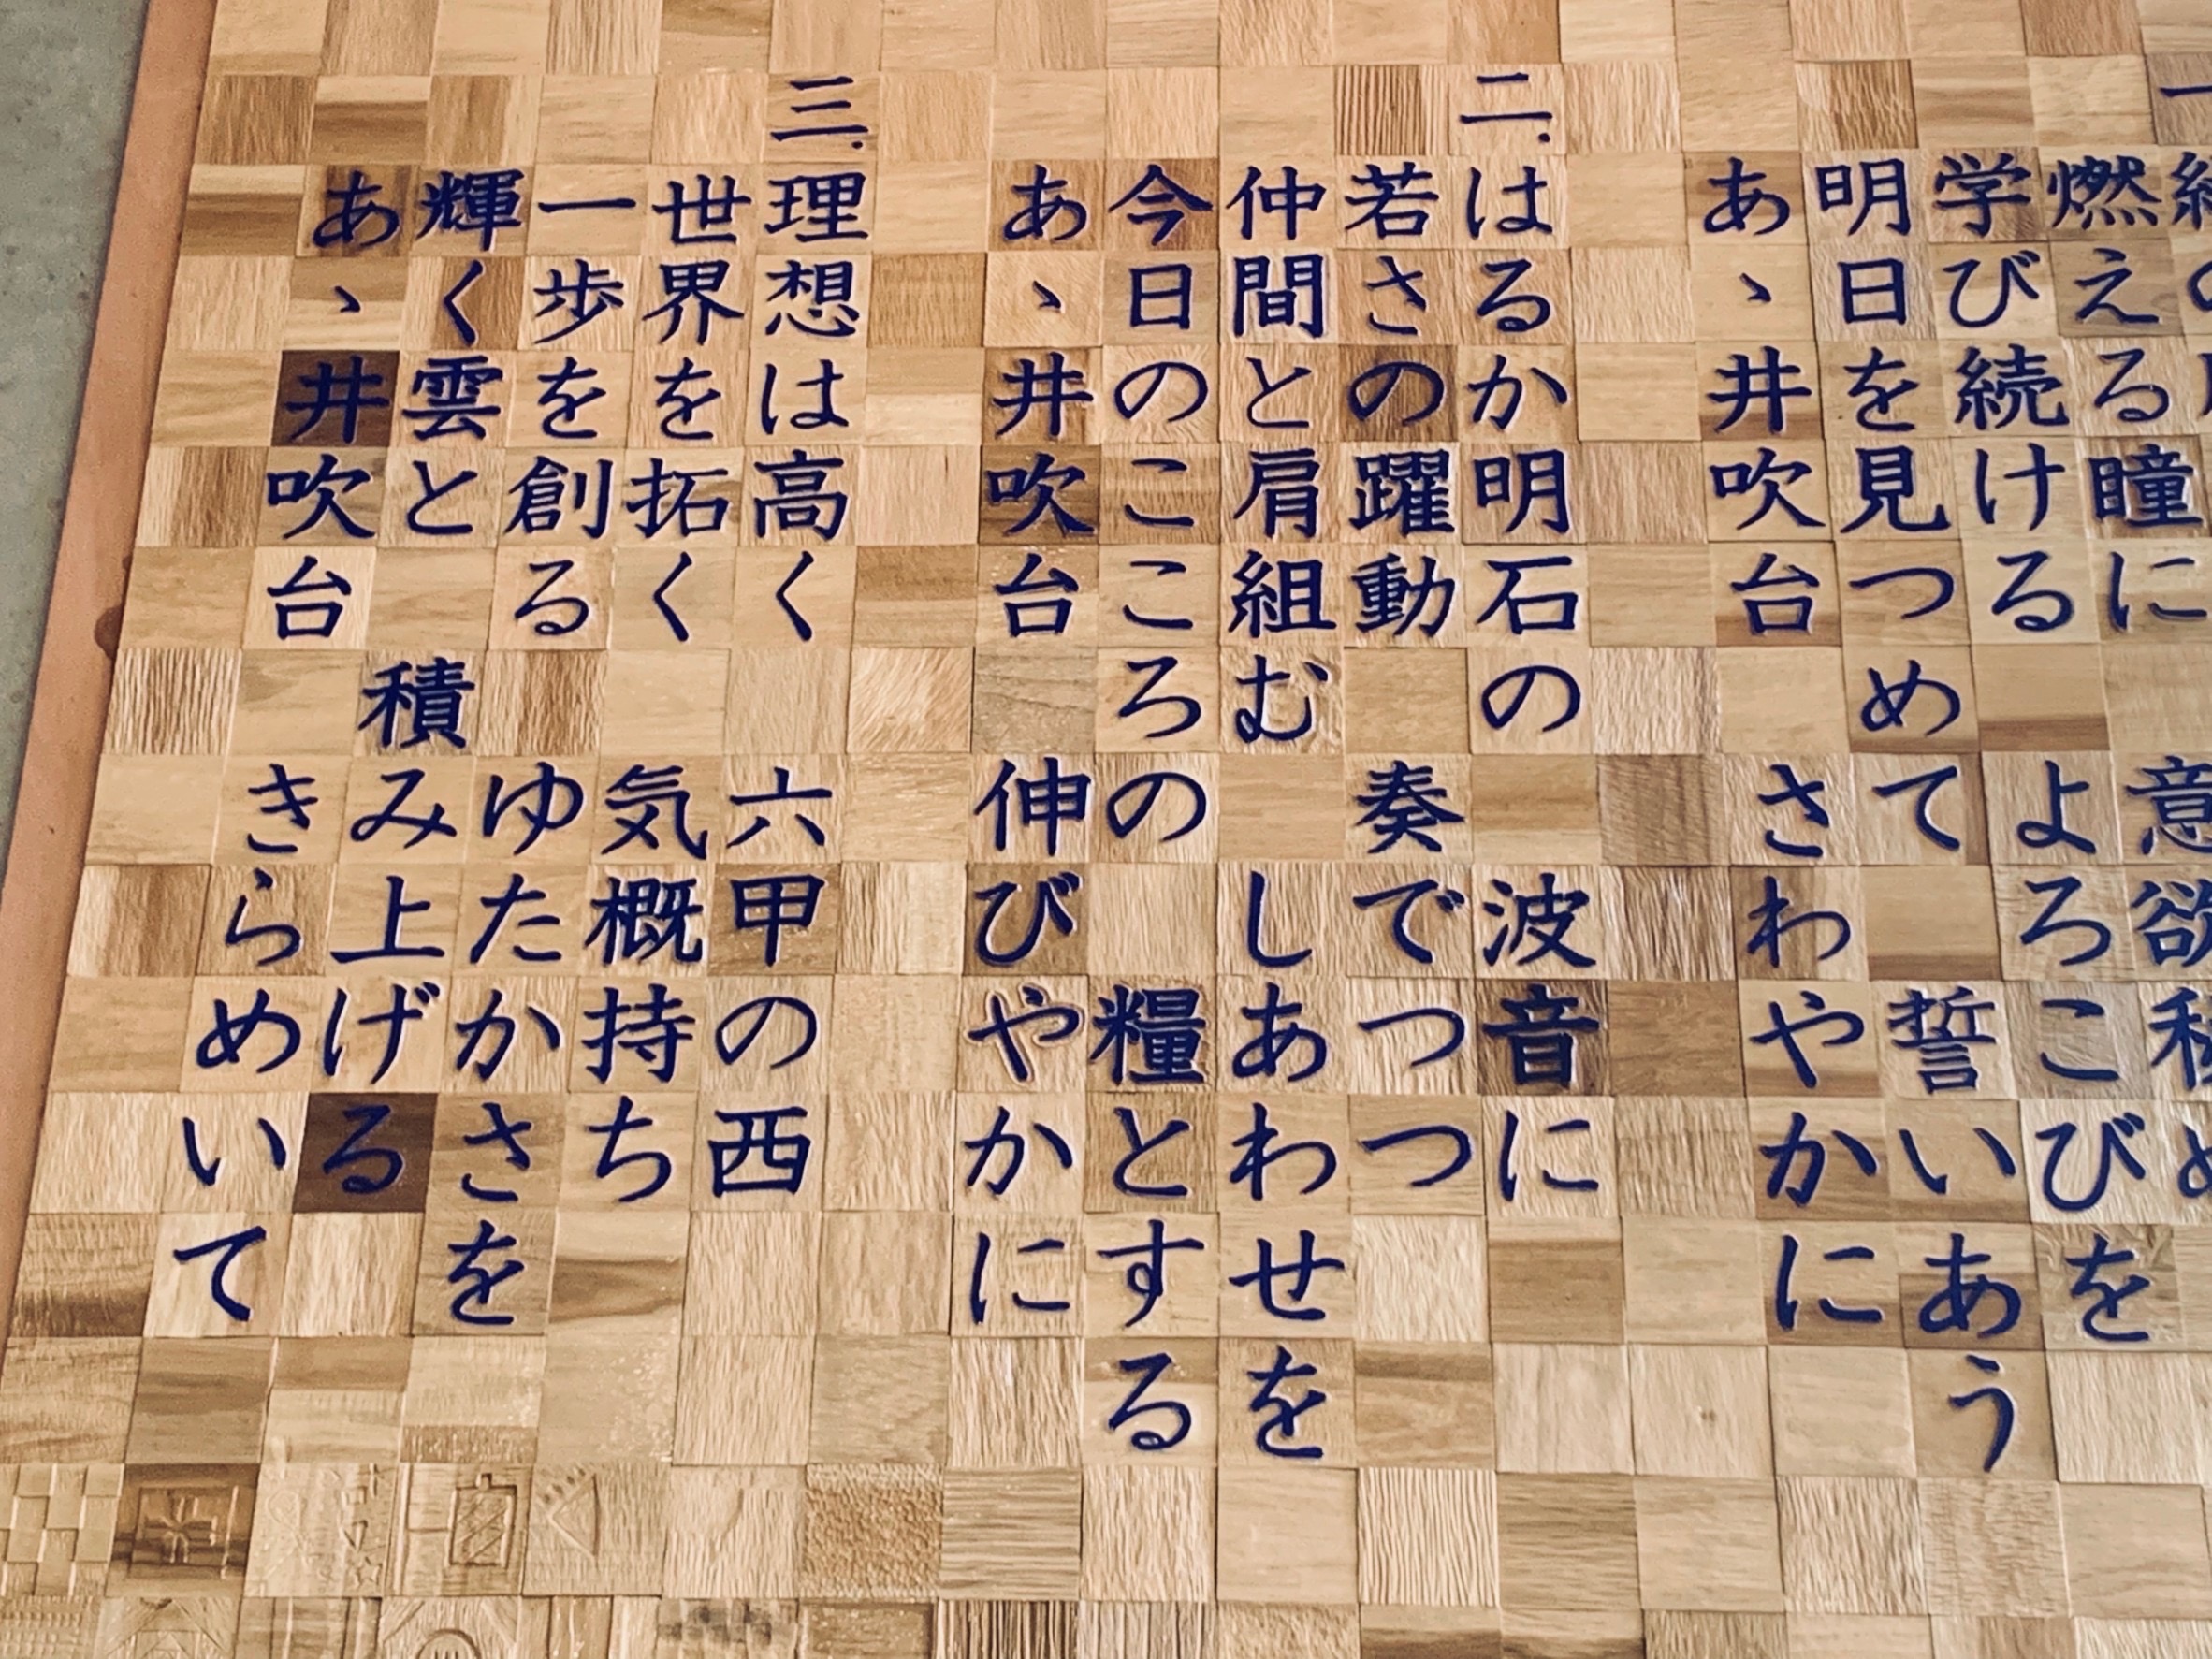 燃える瞳に 意欲
学び続ける よろこびを
明日を見つめて 誓いあう
あヽ井吹台 さわやかに
二.はるか明石の 波音に
若さの躍動 奏でつつ
仲間と肩組む しあわせを
今日のこころの 糧とする
あヽ井吹台 伸びやかに
三.理想は高く 六甲の西
世界を拓く 気概持ち
一歩を創る ゆたかさを
輝く雲と 積み上げる
あヽ井吹台 きらめいて